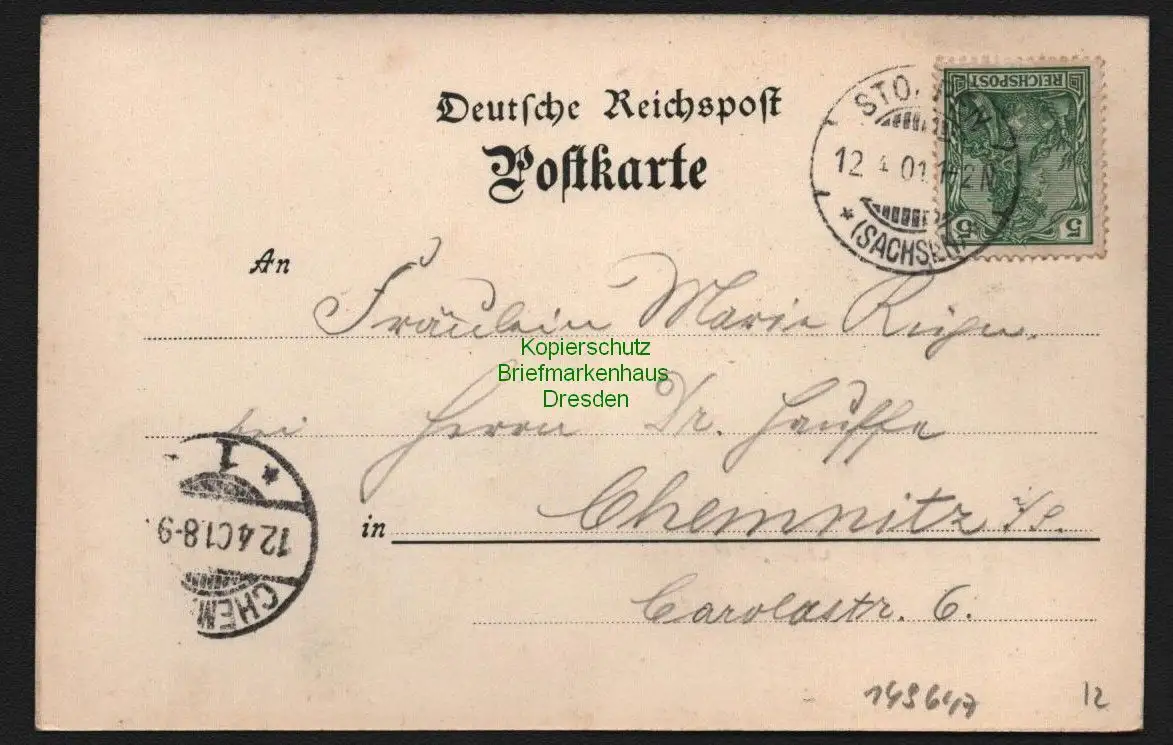 Deutsche Reichspost
Postkarte
REICHSPOST
5 5
12 4 01 1-2 N
* (SACHSEN)
An Fräulein Marie
Kopierschutz
Briefmarkenhaus
Dresden
bei Herrn Dr. Hauffe
in Chemnitz i/S.
Carolastr. 6.
* 1 *
12.4.01.8-9
CHEM
12